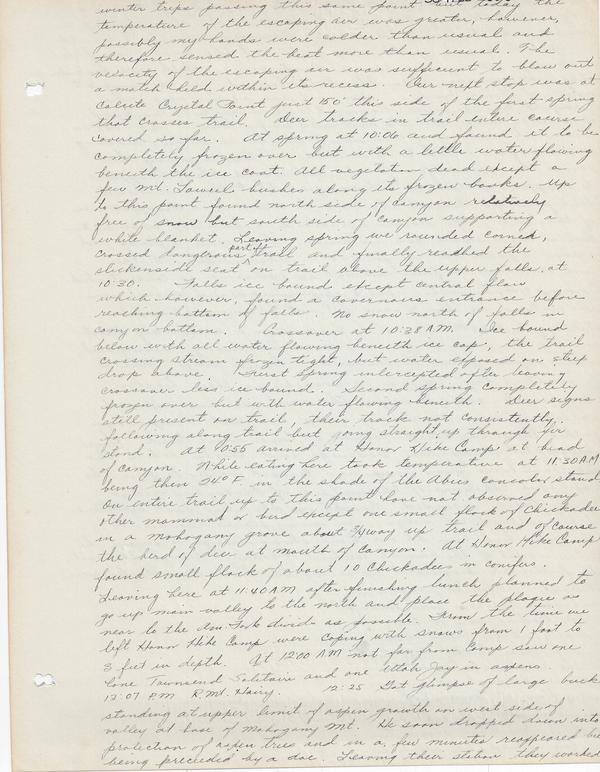 winter trips passing this same point the
temperature of the escaping air was greater, however,
possibly my hands were colder than usual and
therefore sensed the heat more than usual. The
velocity of the escaping air was sufficient to blow out
a match held within its recess. Our next stop was at
Calcite Crystal Point just 150' this side of the first spring
that crosses trail. Deer tracks in trail entire course
covered so far. At spring at 10:06 and found it to be
completely frozen over but with a little water flowing
beneath the ice coat. All vegetation dead except a
few Mt. Laurels bushes along its frozen banks. Up
to this point found north side of canyon relatively
free of snow but south side of canyon supporting a
white blanket. Leaving spring we rounded corner,
crossed dangerous part of trail and finally reached the
slickenside seat on trail above the upper falls, at
10:30. Falls ice bound except central flow
which however, found a cavernous entrance before
reaching bottom of falls. No snow north of falls in
canyon bottom. Crossover at 10:38 A.M. Ice bound
below with all water flowing beneath ice cap, the trail
crossing stream frozen tight, but water exposed on steep
drop above. First spring intercepted after leaving
crossover less ice bound. Second spring completely
frozen over but with water flowing beneath. Deer signs
still present on trail, their track not consistently
following along trail but going straight up through fir
stand. At 10:55 arrived at Honor Hike Camp at head
of canyon. While eating here took temperature at 11:30 AM
being then 24° F. in the shade of the Abies concolor stand
On entire trail up to this point have not observed any
other mammal or bird except one small flock of Chickadees
in a mahogany grove about 3/4 way up trail and of course
the herd of deer at mouth of canyon. At Honor Hike Camp
found small flock of about 10 Chickadees in conifers.
Leaving here at 11:40 AM after finishing lunch planned to
go up main valley to the north and place the plagues as
near to the Am. Fork divide as possible. From the time we
left Honor Hike Camp were coping with snows from 1 foot to
3 feet in depth. At 12:00 AM not far from Camp saw one
lone Townsend Solitaire and one Utah Jay in aspens.
12:07 P.M. R.Mt. Hairy. 12:25 Got glimpse of large buck
standing at upper limit of aspen growth on west side of
valley at base of Mahogany Mt. He soon dropped down into
protection of aspen trees and in a few minutes reappeared but
being preceeded by a doe. Leaving their station they worked